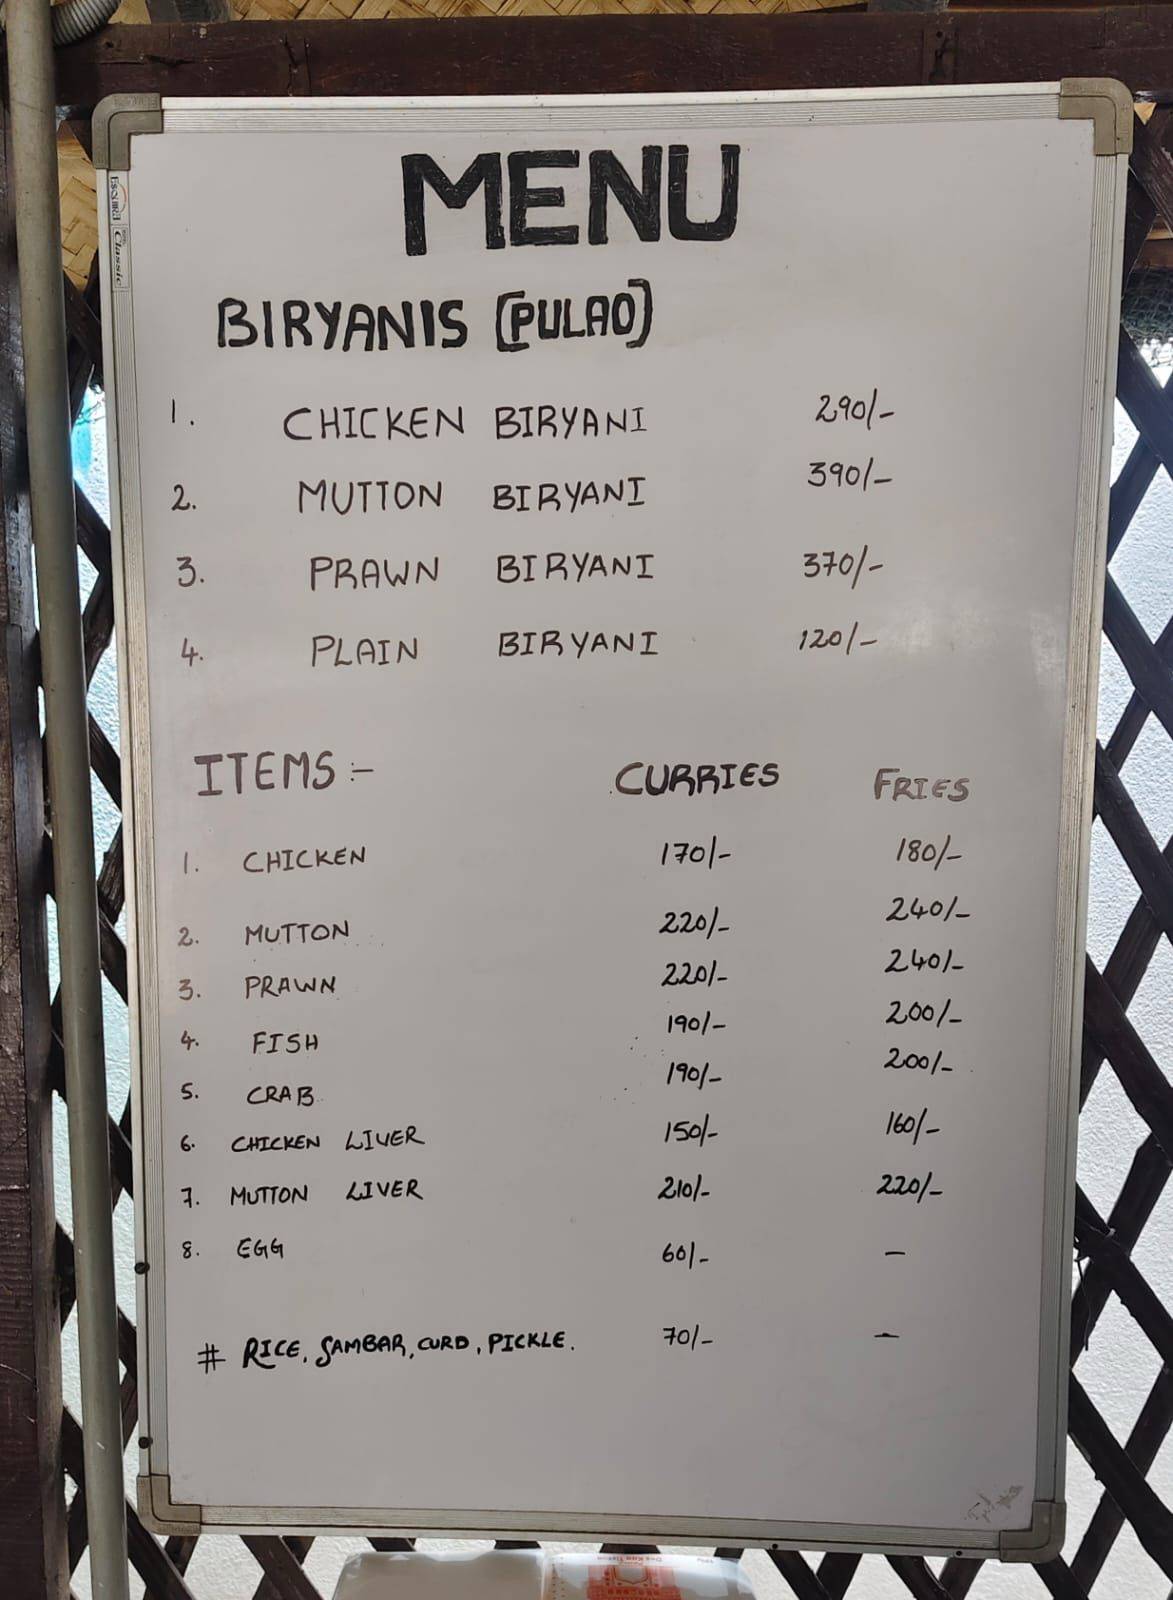 MENU
BIRYANIS [PULAO]
1. CHICKEN BIRYANI 290/-
2. MUTTON BIRYANI 390/-
3. PRAWN BIRYANI 370/-
4. PLAIN BIRYANI 120/-
ITEMS :- CURRIES FRIES
1. CHICKEN 170/- 180/-
2. MUTTON 220/- 240/-
3. PRAWN 220/- 240/-
4. FISH 190/- 200/-
5. CRAB 190/- 200/-
6. CHICKEN LIVER 150/- 160/-
7. MUTTON LIVER 210/- 220/-
8. EGG 60/- —
# RICE, SAMBAR, CURD, PICKLE. 70/- —
Classic